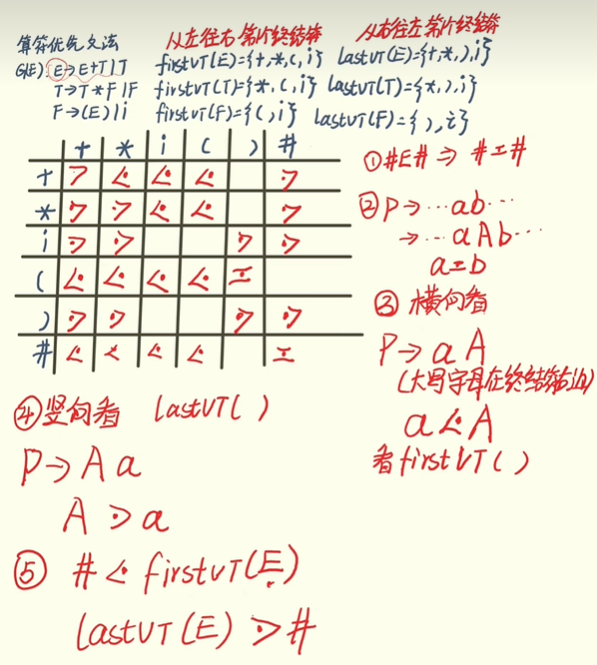 算符优先文法
G(E): E→E+T|T
T→T*F|F
F→(E)|i
从左往右第一个终结符
firstVT(E)={+,*,(,i}
firstVT(T)={*,(,i}
firstVT(F)={(,i}
从右往左第一个终结符
lastVT(E)={+,*,),i}
lastVT(T)={*,),i}
lastVT(F)={),i}
+ * i ( ) #
+ ⋗ ⋖ ⋖ ⋖ ⋗
* ⋗ ⋗ ⋖ ⋖ ⋗
i ⋗ ⋗ ⋗ ⋗
( ⋖ ⋖ ⋖ ⋖ ≖
) ⋗ ⋗ ⋗ ⋗
# ⋖ ⋖ ⋖ ⋖ ≖
① #E# ⇒ #≖#
② P→…ab…
→…aAb…
a≖b
③ 横向看
P→aA
(大写字母在终结符右边)
a⋖A
看firstVT()
④竖向看 lastVT()
P→Aa
A⋗a
⑤ #⋖firstVT(E)
lastVT(E)⋗#